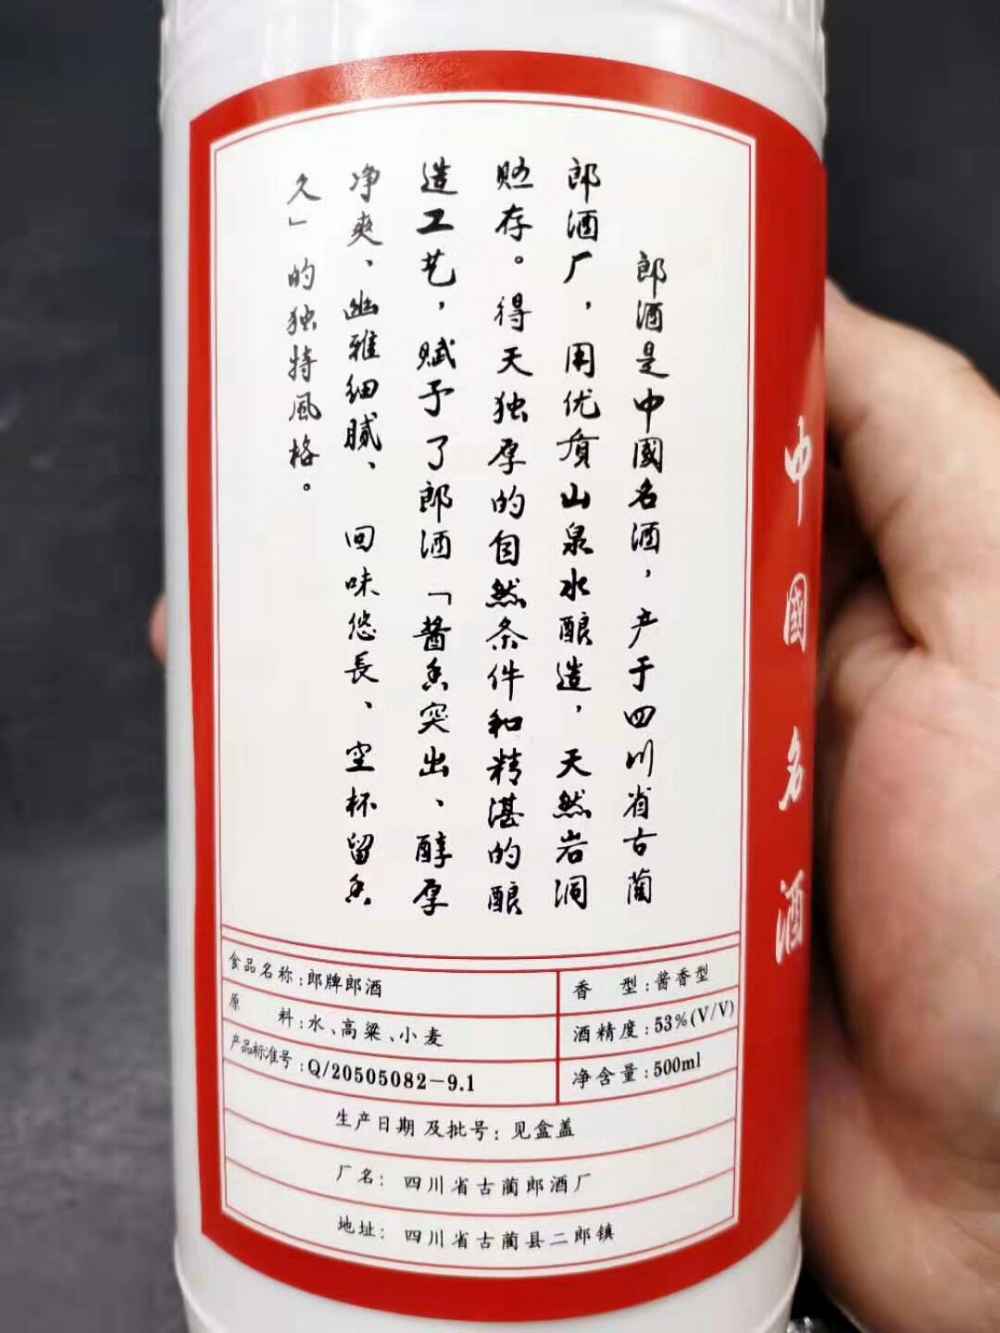 郎酒是中國名酒，产于四川省古蔺
郎酒厂，用优质山泉水酿造，天然岩洞
贮存。得天独厚的自然条件和精湛的酿
造工艺，赋予了郎酒「酱香突出、醇厚
净爽、幽雅细腻、回味悠長、空杯留香
久」的独特風格。
中國名酒
食品名称：郎牌郎酒
香 型：酱香型
原 料：水、高粱、小麦
酒精度：53%(V/V)
产品标准号：Q/20505082-9.1
净含量：500ml
生产日期及批号：见盒盖
厂名：四川省古蔺郎酒厂
地址：四川省古蔺县二郎镇